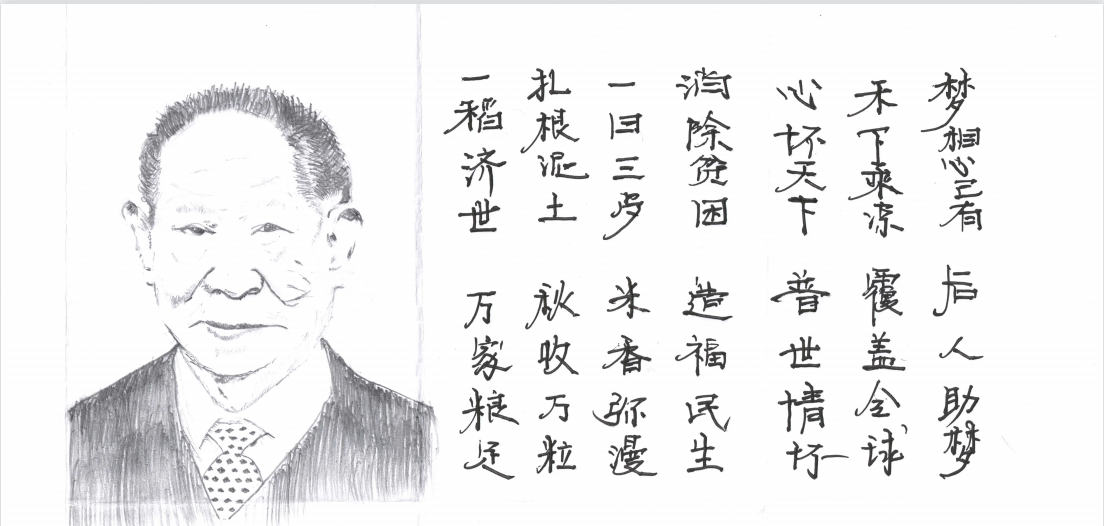 一稻济世 万家粮足
扎根泥土 秋收万粒
一日三歺 米香弥漫
消除贫困 造福民生
心怀天下 普世情怀
禾下乘凉 覆盖全球
梦想已有 后人助梦